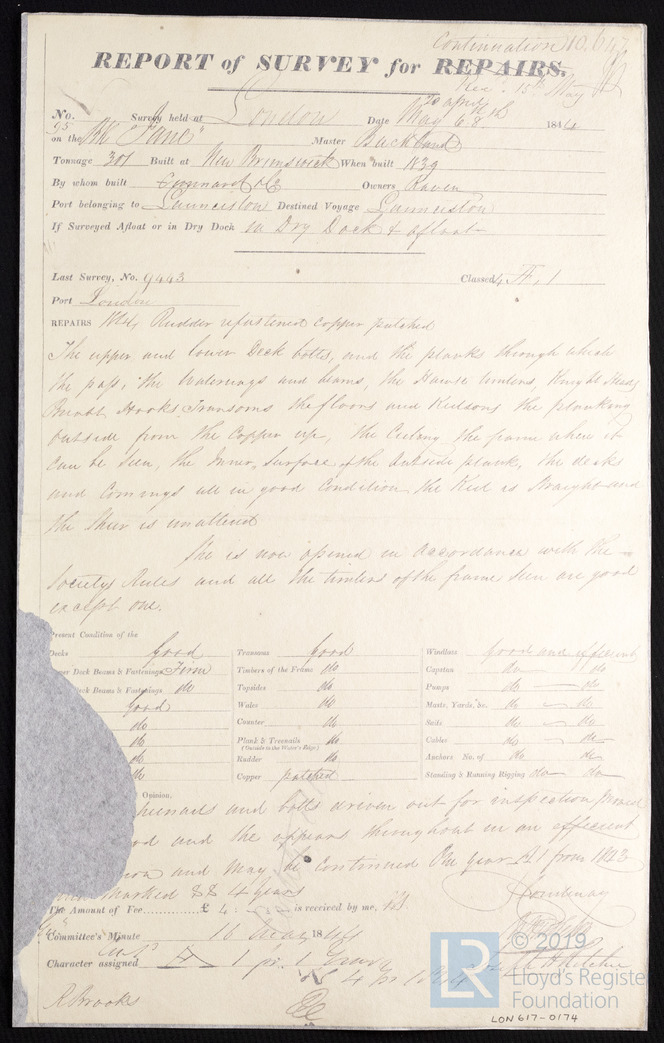 Continuation 10,647
REPORT of SURVEY for REPAIRS.
Rec: 15th May
20 april
No. Survey held at London Date May 6 8th 1844
95 on the Bk "Jane" Master Buckland
Tonnage 301 Built at New Brunswick When built 1839
By whom built Owners Raven
Port belonging to Launceston Destined Voyage Launceston
If Surveyed Afloat or in Dry Dock In Dry Dock & afloat
Last Survey, No. 9443 Classed 4 A, 1
Port London
REPAIRS Rudder refastened copper patched
The upper and lower Deck bolts, and the planks through which
the pass, the Waterways and beams, the Hawse timbers, Knight Heads
Breast Hooks Transoms the floors and Keelsons the planking
outside from the Copper up, the Ceiling the frame where it
can be seen, the Inner Surface of the outside plank, the decks
and Comings all in good Condition the Keel is Straight and
the Sheer is unaltered
She is now opened in accordance with the
Societys Rules and all the timbers of the frame seen are good
except one.
Present Condition of the
Decks Good Transoms Good Windlass Good and efficient
Upper Deck Beams & Fastenings Firm Timbers of the Frame do Capstan do do
Deck Beams & Fastenings do Topsides do Pumps do do
Good Wales do Masts, Yards, &c. do do
do Counter do Sails do do
do Plank & Treenails do Cables do do
(Outside to the Water's Edge.)
do Rudder do Anchors No. of do do
do Copper patched Standing & Running Rigging do do
Opinion,
treenails and bolts driven out for inspection proved
good and she appears throughout in an efficient
and may be Continued One year A1 from 1843
marked 4 years
The Amount of Fee £ 4 : is received by me,
Courtenay
Committee's Minute 16 May 1844
Character assigned A 1
R Brooks
LR © 2019
Lloyd's Register
Foundation
LON617-0174